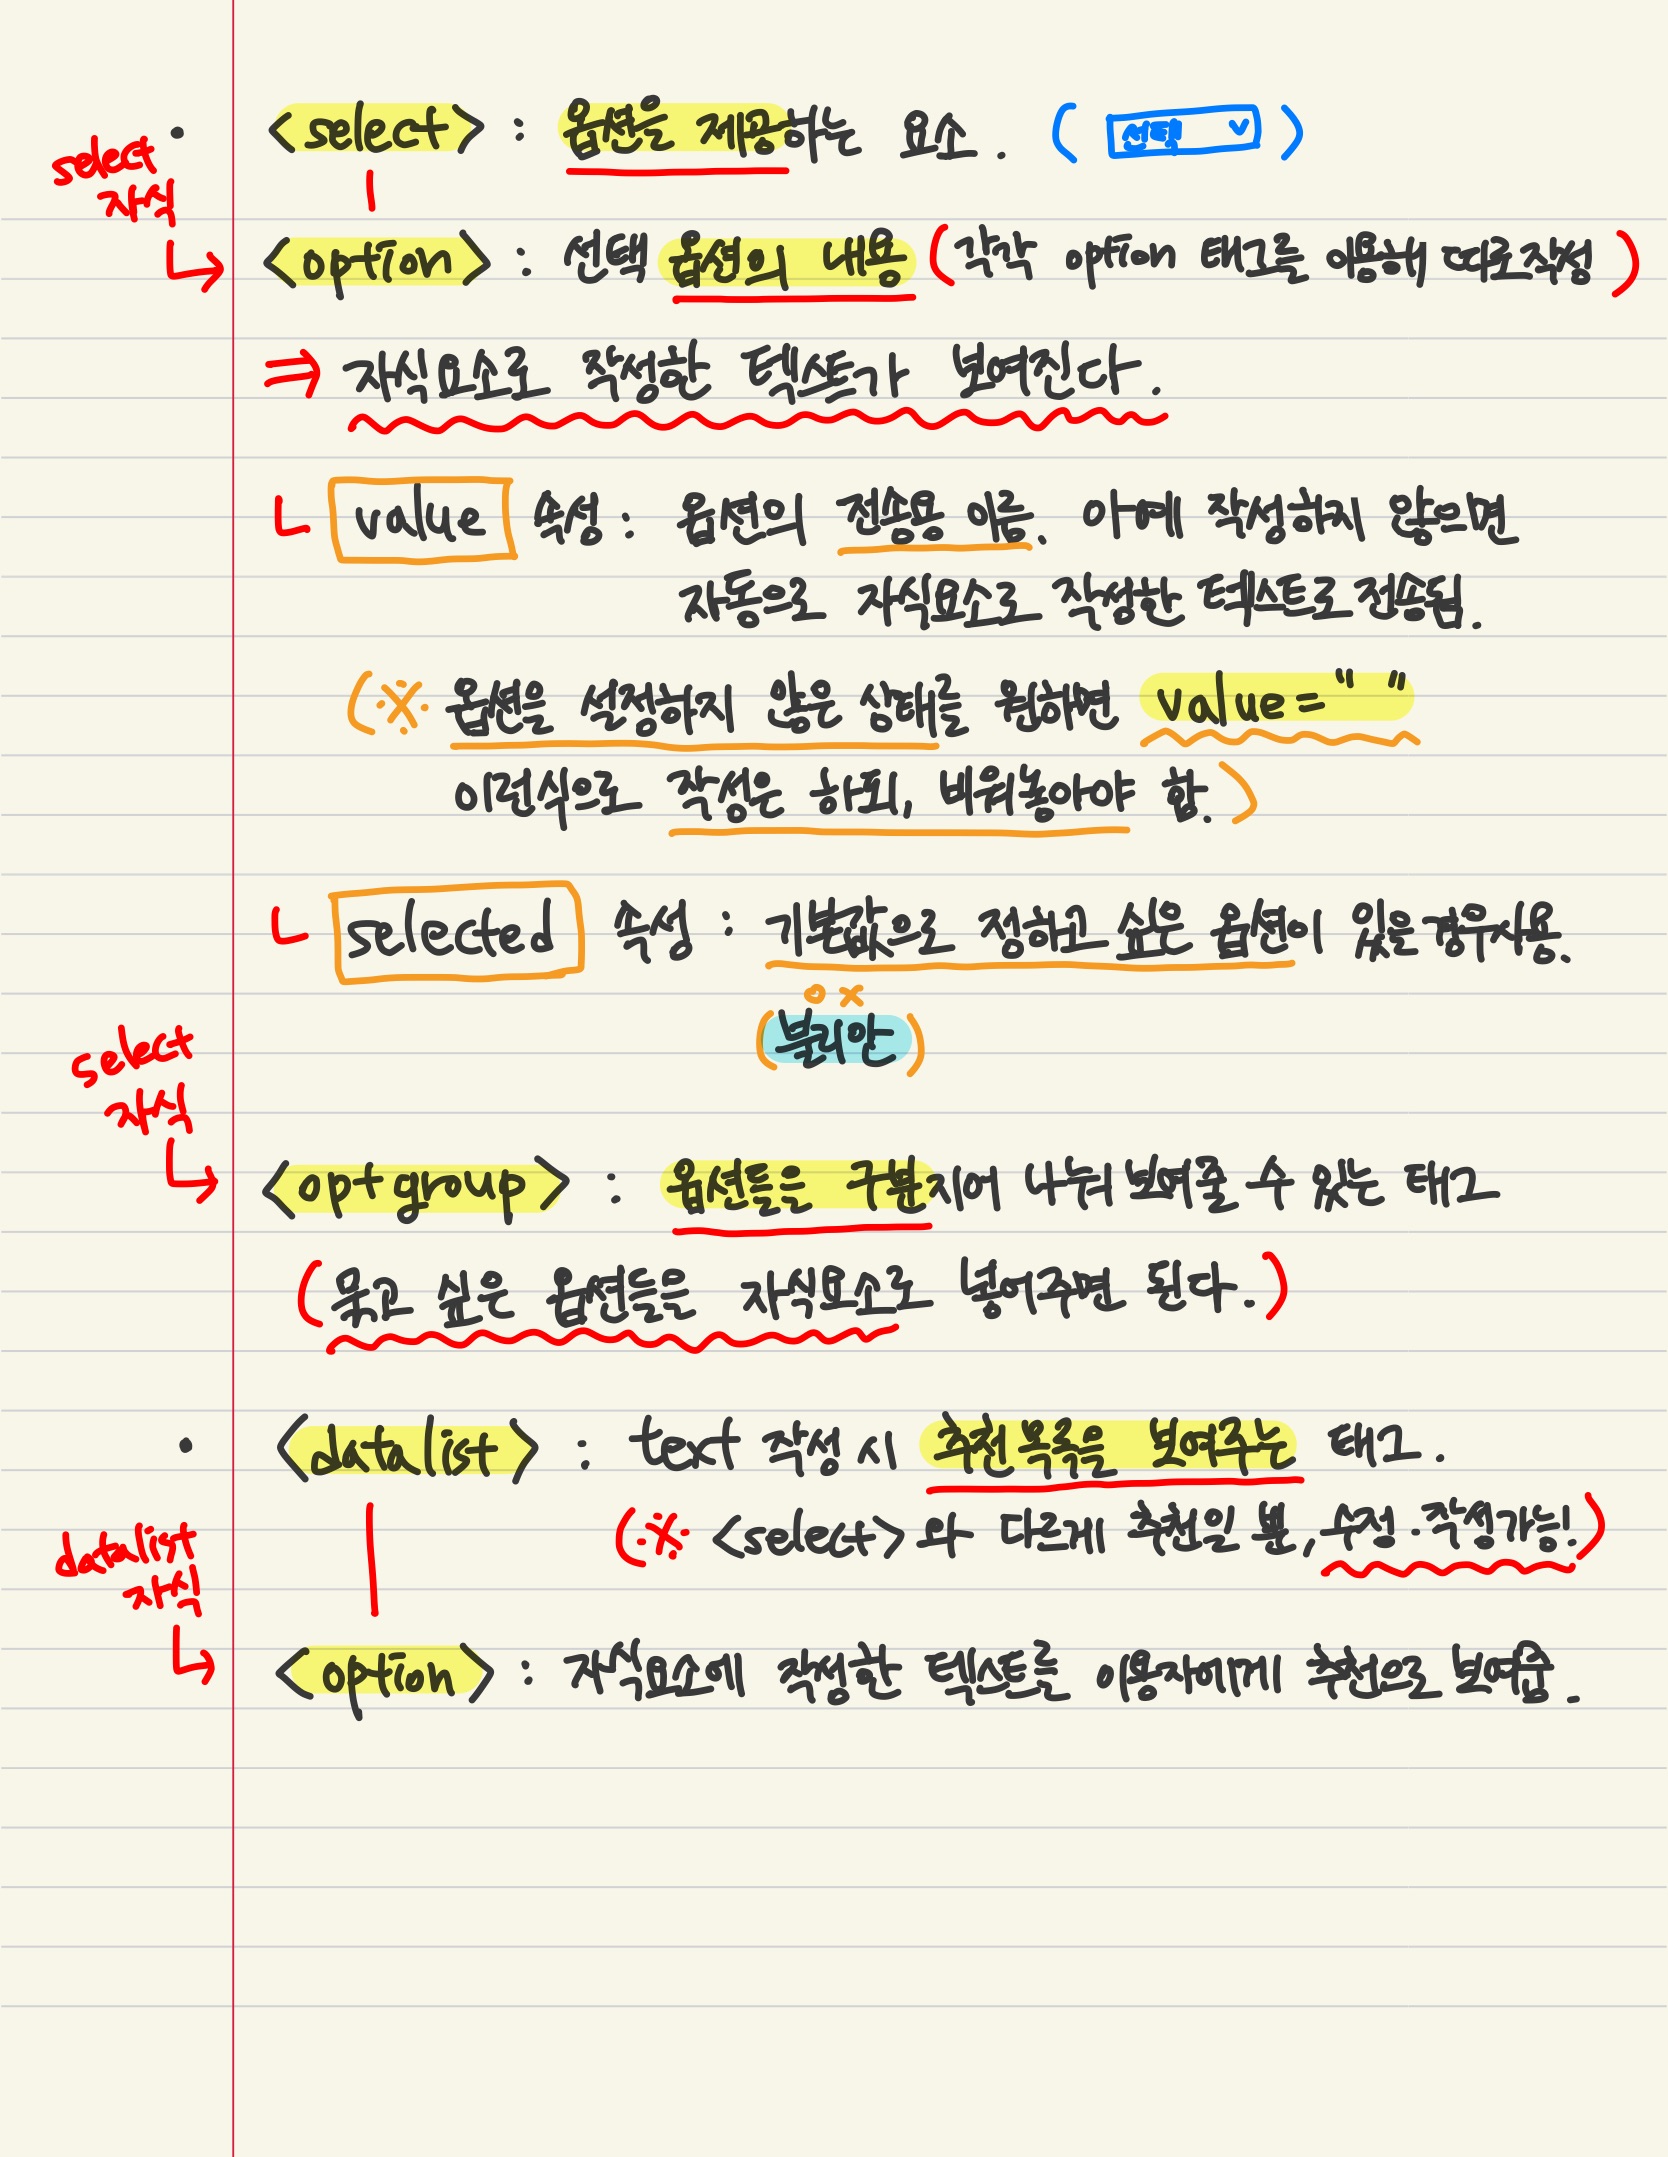 • <select> : 옵션을 제공하는 요소. ( 선택 ∨ )
select
자식
↳ <option> : 선택 옵션의 내용 (각각 option 태그를 이용해 따로작성)
⇒ 자식요소로 작성한 텍스트가 보여진다.
ㄴ value 속성 : 옵션의 전송용 이름. 아예 작성하지 않으면
자동으로 자식요소로 작성한 텍스트로 전송됨.
(※ 옵션을 설정하지 않은 상태를 원하면 value=" "
이런식으로 작성은 하되, 비워놓아야 함.)
ㄴ selected 속성 : 기본값으로 정하고 싶은 옵션이 있을 경우사용.
o x
(불리안)
select
자식
↳ <optgroup> : 옵션들을 구분지어 나눠 보여줄 수 있는 태그
(묶고 싶은 옵션들을 자식요소로 넣어주면 된다.)
• <datalist> : text 작성 시 추천목록을 보여주는 태그.
(※ <select>와 다르게 추천일 뿐, 수정·작성가능!)
datalist
자식
↳ <option> : 자식요소에 작성한 텍스트를 이용자에게 추천으로 보여줌.